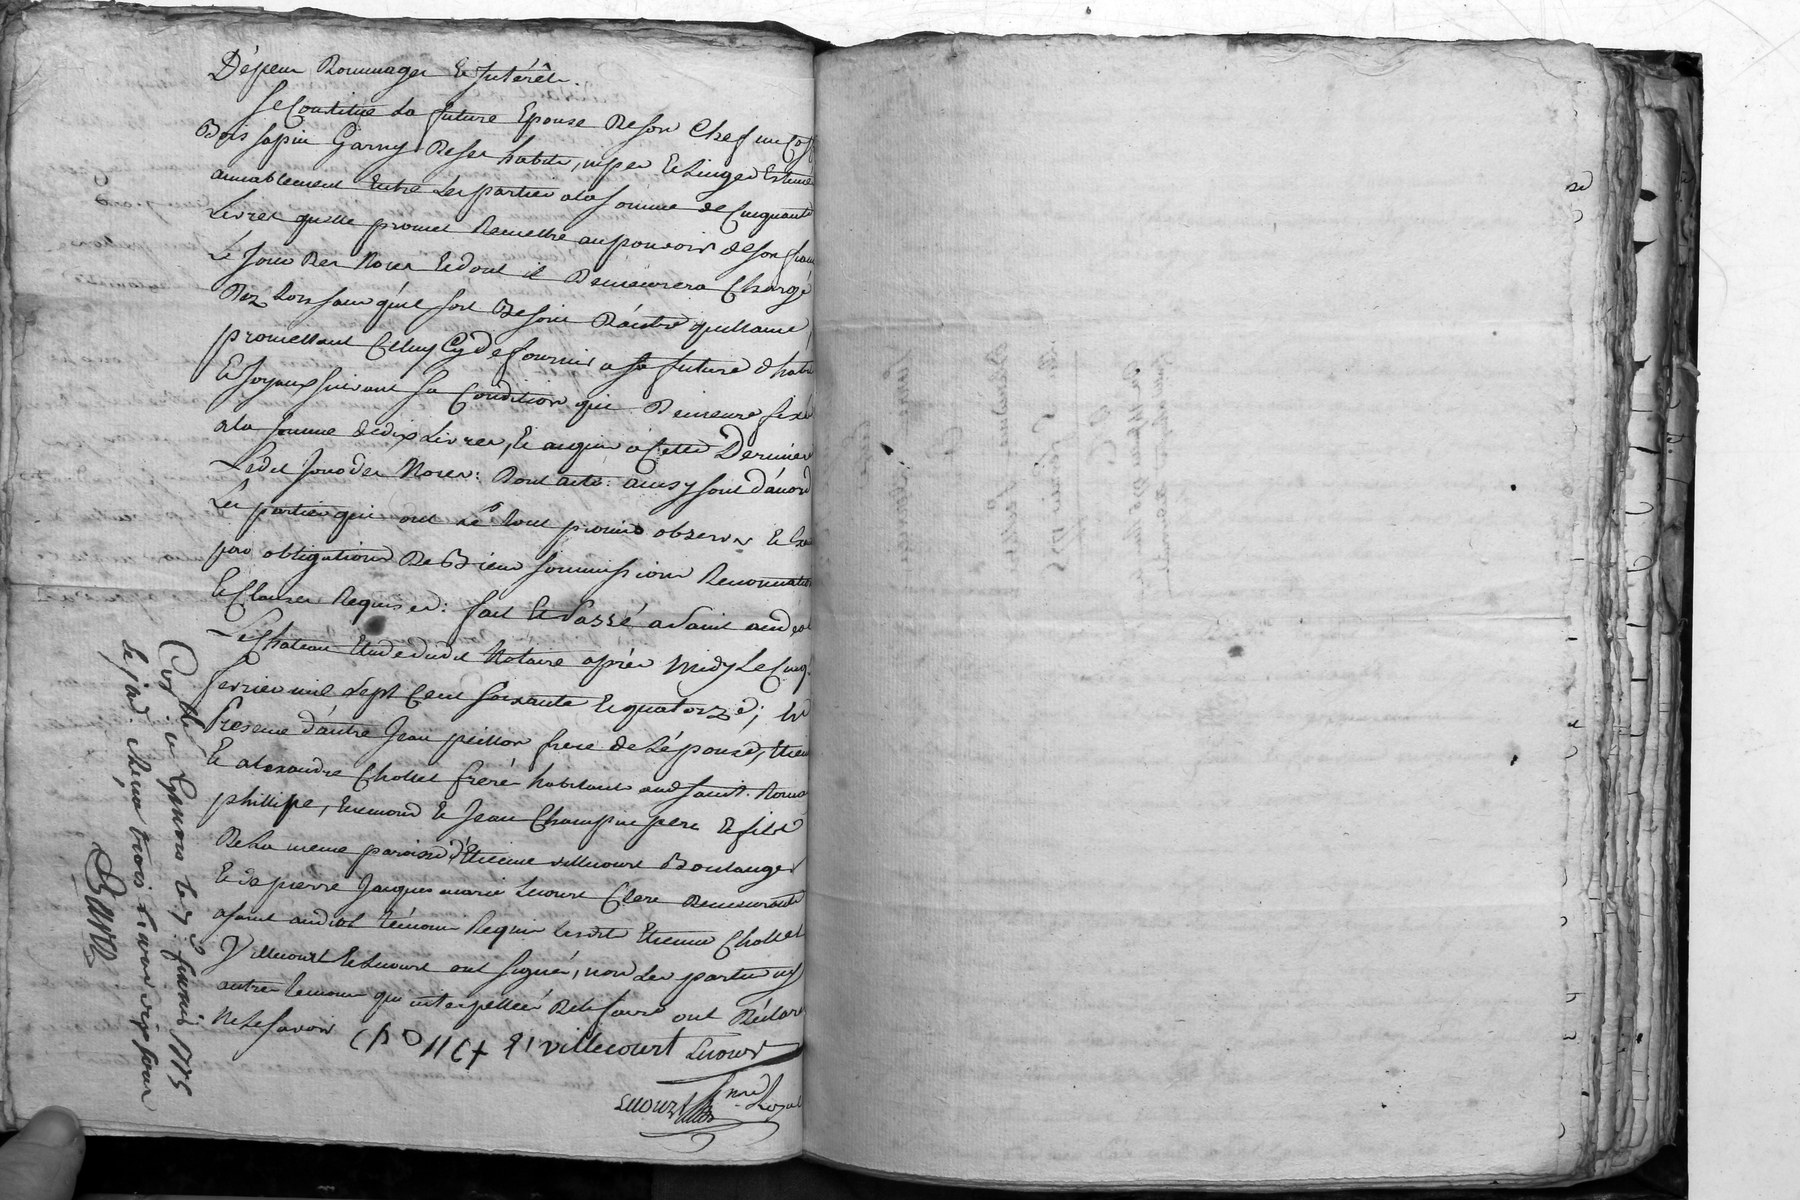 Dépens Dommages Et Intérêts.
Se Constitue La future Epouse De son Chef un Cof
Bois sapin Garny De ses habits, nipes Et Linges Estimé
amiablement Entre Les parties a la somme de Cinquante
Livres qu'elle promet Remettre au pouvoir de son futur
Le Jour Des Noces Et dont il Demeurera Chargé
Dez Lors sans qu'il soit Besoin D'autre quittance,
promettant Celluy Cy de fournir a sa future d'habits
Et Joyaux suivant sa Condition qui Demeure fixé
a la somme de dix Livres, Et acquis a Cette Derniere
Ledit Jour des Noces: Dont acte: ainsy sont d'accord
Les parties qui ont Le tout promis observer Et
par obligations De Biens soumissions Renonciations
Et Clauses Requises: fait Et Passé a Saint andeol
Le Chateau Etude dudit Notaire après Midy Le Cinq
fevrier mil sept Cent soixante Et quatorze; En
Presence d'autre Jean peillon frere de L'épouse, Etienne
Et alexandre Chollet freres habitants aud. Saint Romain
phillipe, Eremond Et Jean Champin pere Et fils
De La meme paroisse d'Etienne villecourt Boulanger
Et de pierre Jacques marie Lucourt Clerc Demeurants
a saint andéol témoins Requis Lesdits Etienne Chollet
Villecourt Et Lucourt ont signés, non Les parties ny
autres temoins qui interpellés De le faire ont Déclaré
Ne Le savoir CHOLLET E. villecourt Lucourt
Lucourt Nre Royal
a Givors le 7 fevrier 1775
Reçu trois livres dix sous